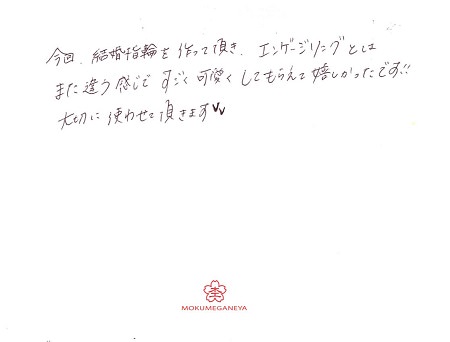 今回、結婚指輪を作って頂き、エンゲージリングとは
また違う感じですごく可愛くしてもらえて嬉しかったです!!
大切に使わせて頂きます
MOKUMEGANEYA